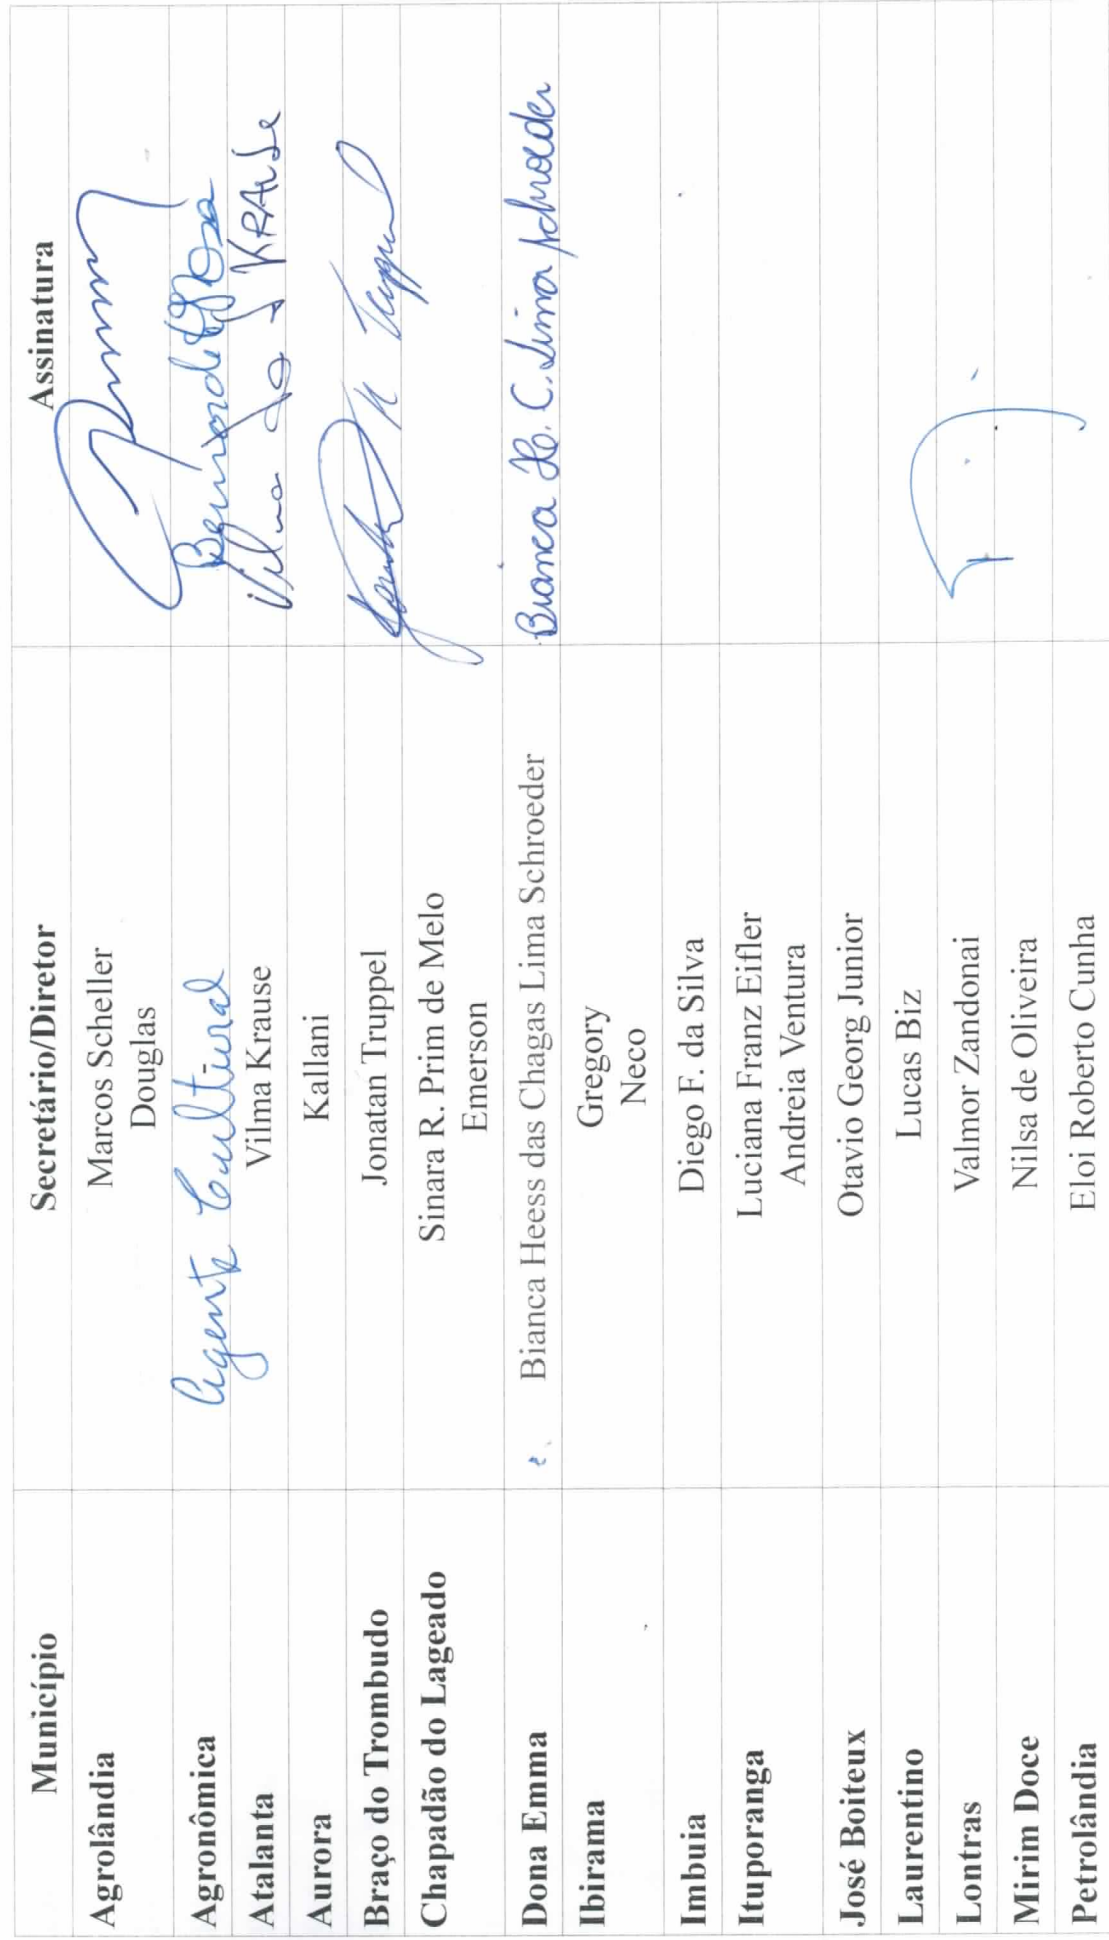 Município Secretário/Diretor Assinatura
Agrolândia Marcos Scheller
Douglas
Agronômica Agente Cultural
Atalanta Vilma Krause Vilma KRAUSe
Aurora Kallani
Braço do Trombudo Jonatan Truppel
Chapadão do Lageado Sinara R. Prim de Melo
Emerson
Dona Emma Bianca Heess das Chagas Lima Schroeder Bianca H. C. Lima Schroeder
Ibirama Gregory
Neco
Imbuia Diego F. da Silva
Ituporanga Luciana Franz Eifler
Andreia Ventura
José Boiteux Otavio Georg Junior
Laurentino Lucas Biz
Lontras Valmor Zandonai
Mirim Doce Nilsa de Oliveira
Petrolândia Eloi Roberto Cunha